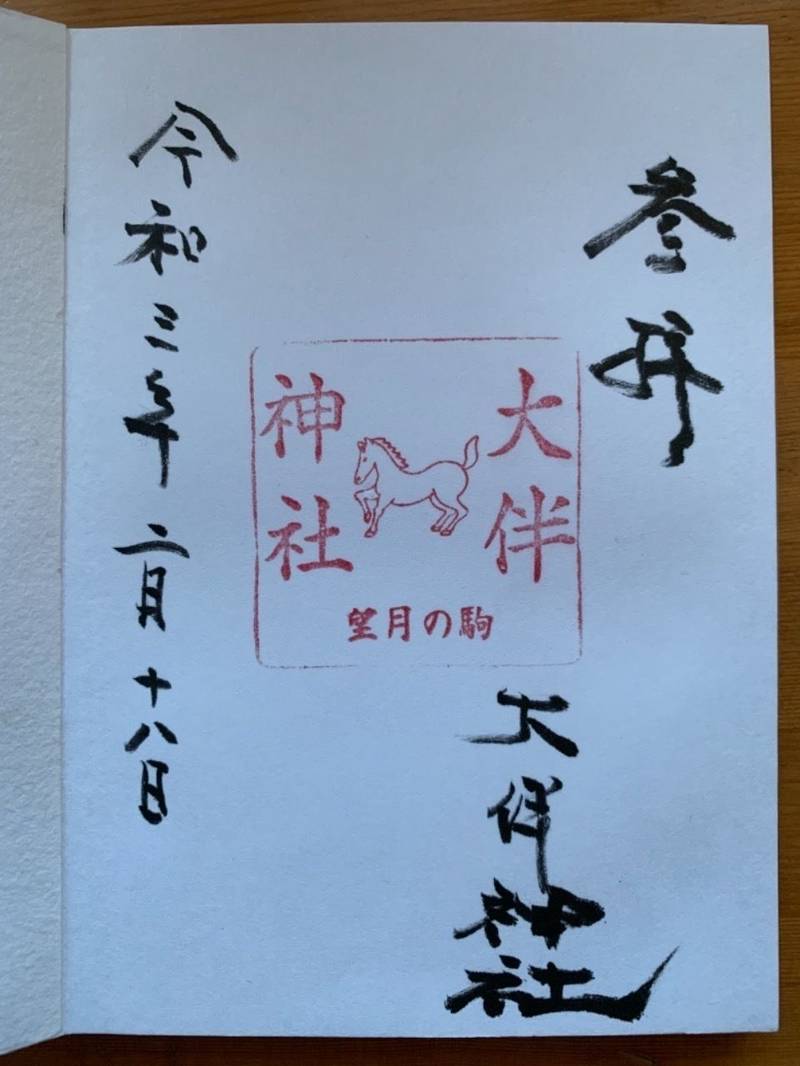 参拝
大伴
神社
望月の駒
大伴神社
令和三年二月十八日